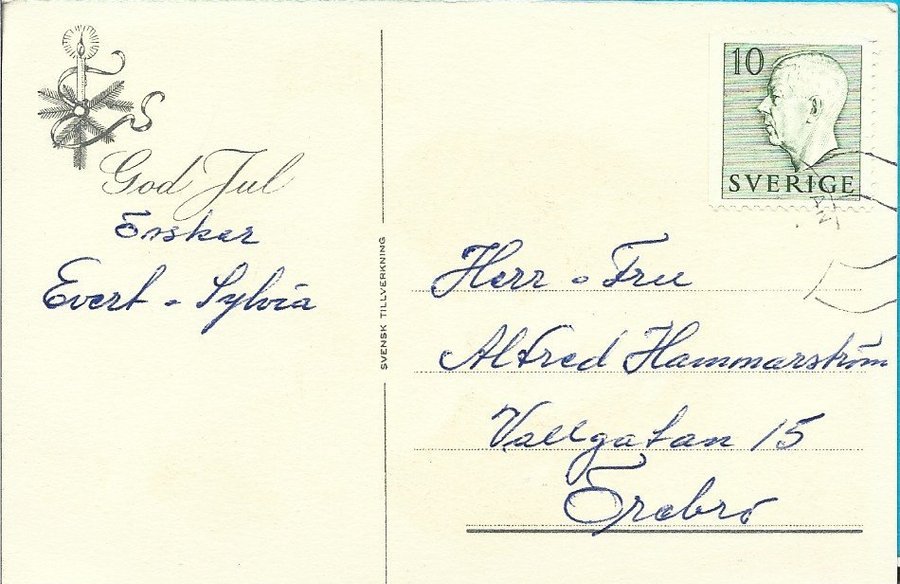 God Jul
önskar
Evert - Sylvia
SVENSK TILLVERKNING
10
SVERIGE
Herr o Fru
Alfred Hammarström
Vallgatan 15
Örebro